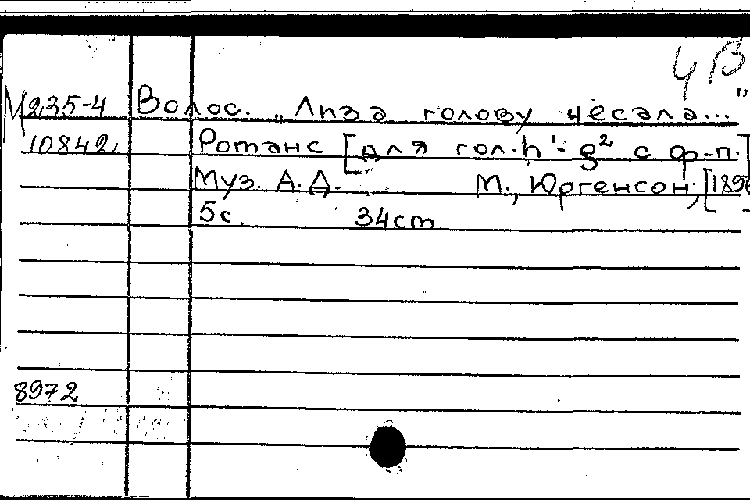 ЧВ
М235-4 Волос. „Лиза голову чесала..."
10842 Романс [для гол. h¹- g² с ф-п.]
Муз. А.Д. М., Юргенсон, [1896
5с. 34cm
8972